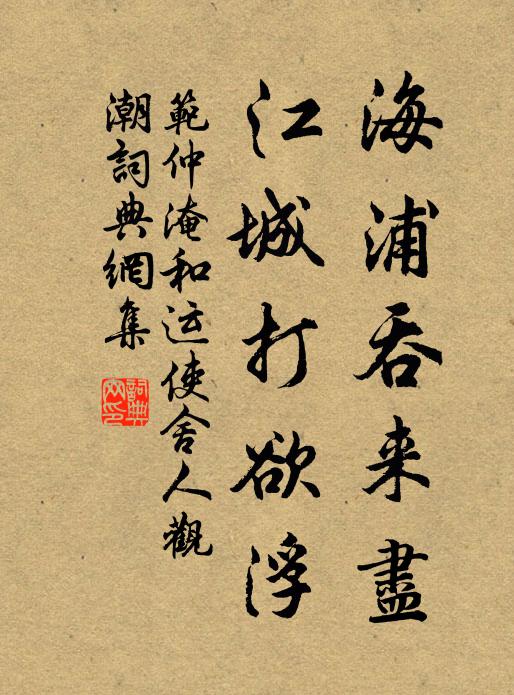 海浦吞来盡
江城打欲浮
範仲淹和运使舍人觀
潮詞典網集
詞典網印